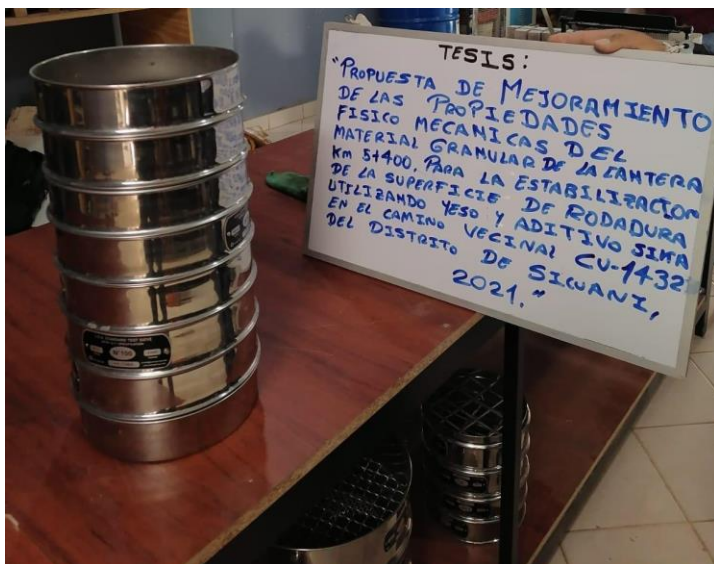 TESIS:
"PROPUESTA DE MEJORAMIENTO
DE LAS PROPIEDADES
FISICO MECANICAS DEL
MATERIAL GRANULAR DE LA CANTERA
Km 5+400, PARA LA ESTABILIZACION
DE LA SUPERFICIE DE RODADURA
UTILIZANDO YESO Y ADITIVO SIKA
EN EL CAMINO VECINAL CV-1432
DEL DISTRITO DE SICUANI,
2021."
N°100